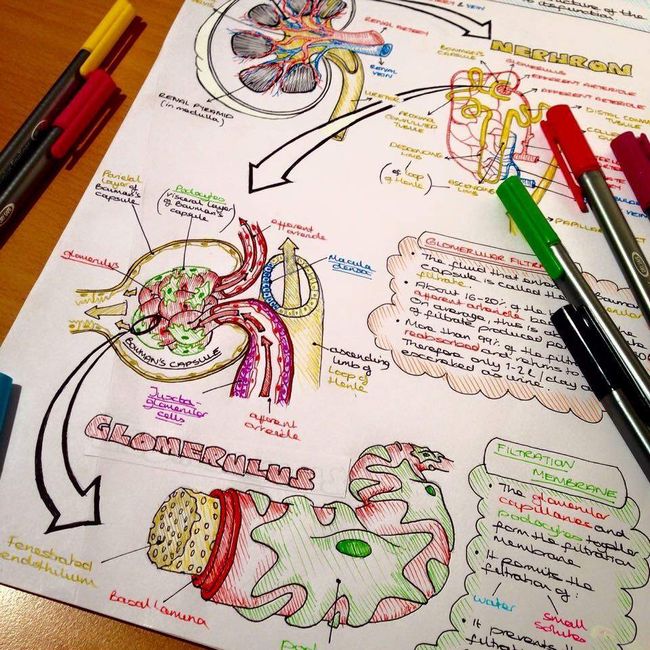 & VEIN
structure of the
its function.
RENAL ARTERY
RENAL
VEIN
URETER
RENAL PYRAMID
(in medulla)
NEPHRON
BOWMAN'S
CAPSULE
GLOMERULUS
EFFERENT ARTERIOLE
AFFERENT ARTERIOLE
DISTAL CONV
TUBULE
PROXIMAL
CONVOLUTED
TUBULE
DESCENDING
LIMB
(of
loop
of Henle)
ASCENDING
LIMB
Parietal
layer of
Bowman's
capsule
Podocytes
(visceral layer
of Bowman's
capsule)
glomerulus
efferent
arteriole
Macula
densa
BOWMAN'S CAPSULE
ascending
limb of
Loop of
Henle
Juxta-
glomerular
cells
afferent
arteriole
GLOMERULAR FILTRA
• The fluid that ente
capsule is called the
filtrate.
• About 16-20% of the
afferent arterioles
On average, this is
of filtrate produced p
• More than 99% of the filt
reabsorbed and returns to
Therefore only 1-2 L / day
excreted as urine.
GLOMERULUS
Fenestrated
endothelium
Basal Lamina
FILTRATION
MEMBRANE
• The glomerular
capillaries and
podocytes together
form the filtration
membrane
• It permits the
filtration of:
water small
solutes
• It prevents